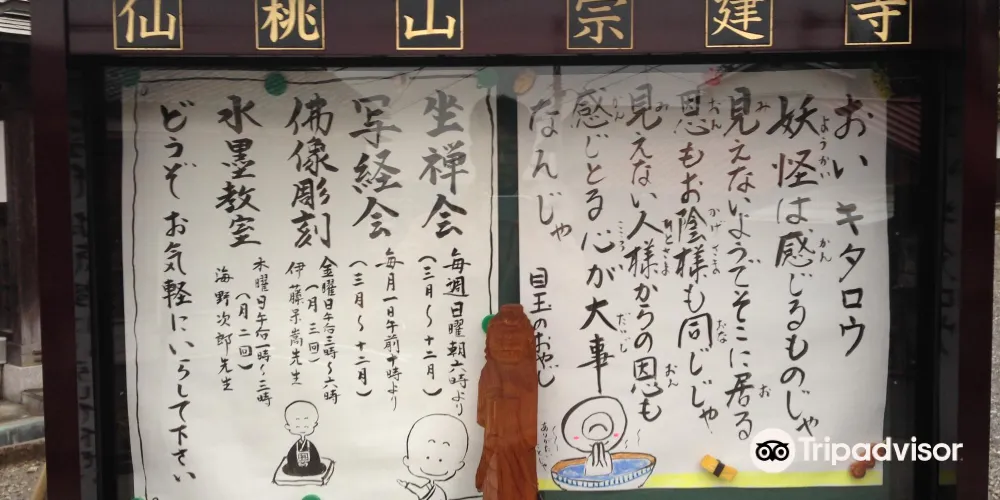 仙桃山宗建寺
おい キタロウ
妖怪は感じるものじゃ
ようかい かん
見えないようでそこに居る
み お
恩もお陰様も同じじゃ
おん かげさま おな
見えない人様からの恩も
み ひとさま おん
感じとる心が大事
かん こころ だいじ
なんじゃ
目玉のおやじ
坐禅会
毎週日曜朝六時より
(三月〜十二月)
写経会
毎月一日午前十時より
(三月〜十二月)
佛像彫刻
金曜日午后三時〜六時
(月三回)
伊藤 先生
水墨教室
木曜日午后一時〜三時
(月二回)
海野次郎先生
どうぞ お気軽にいらして下さい
Tripadvisor